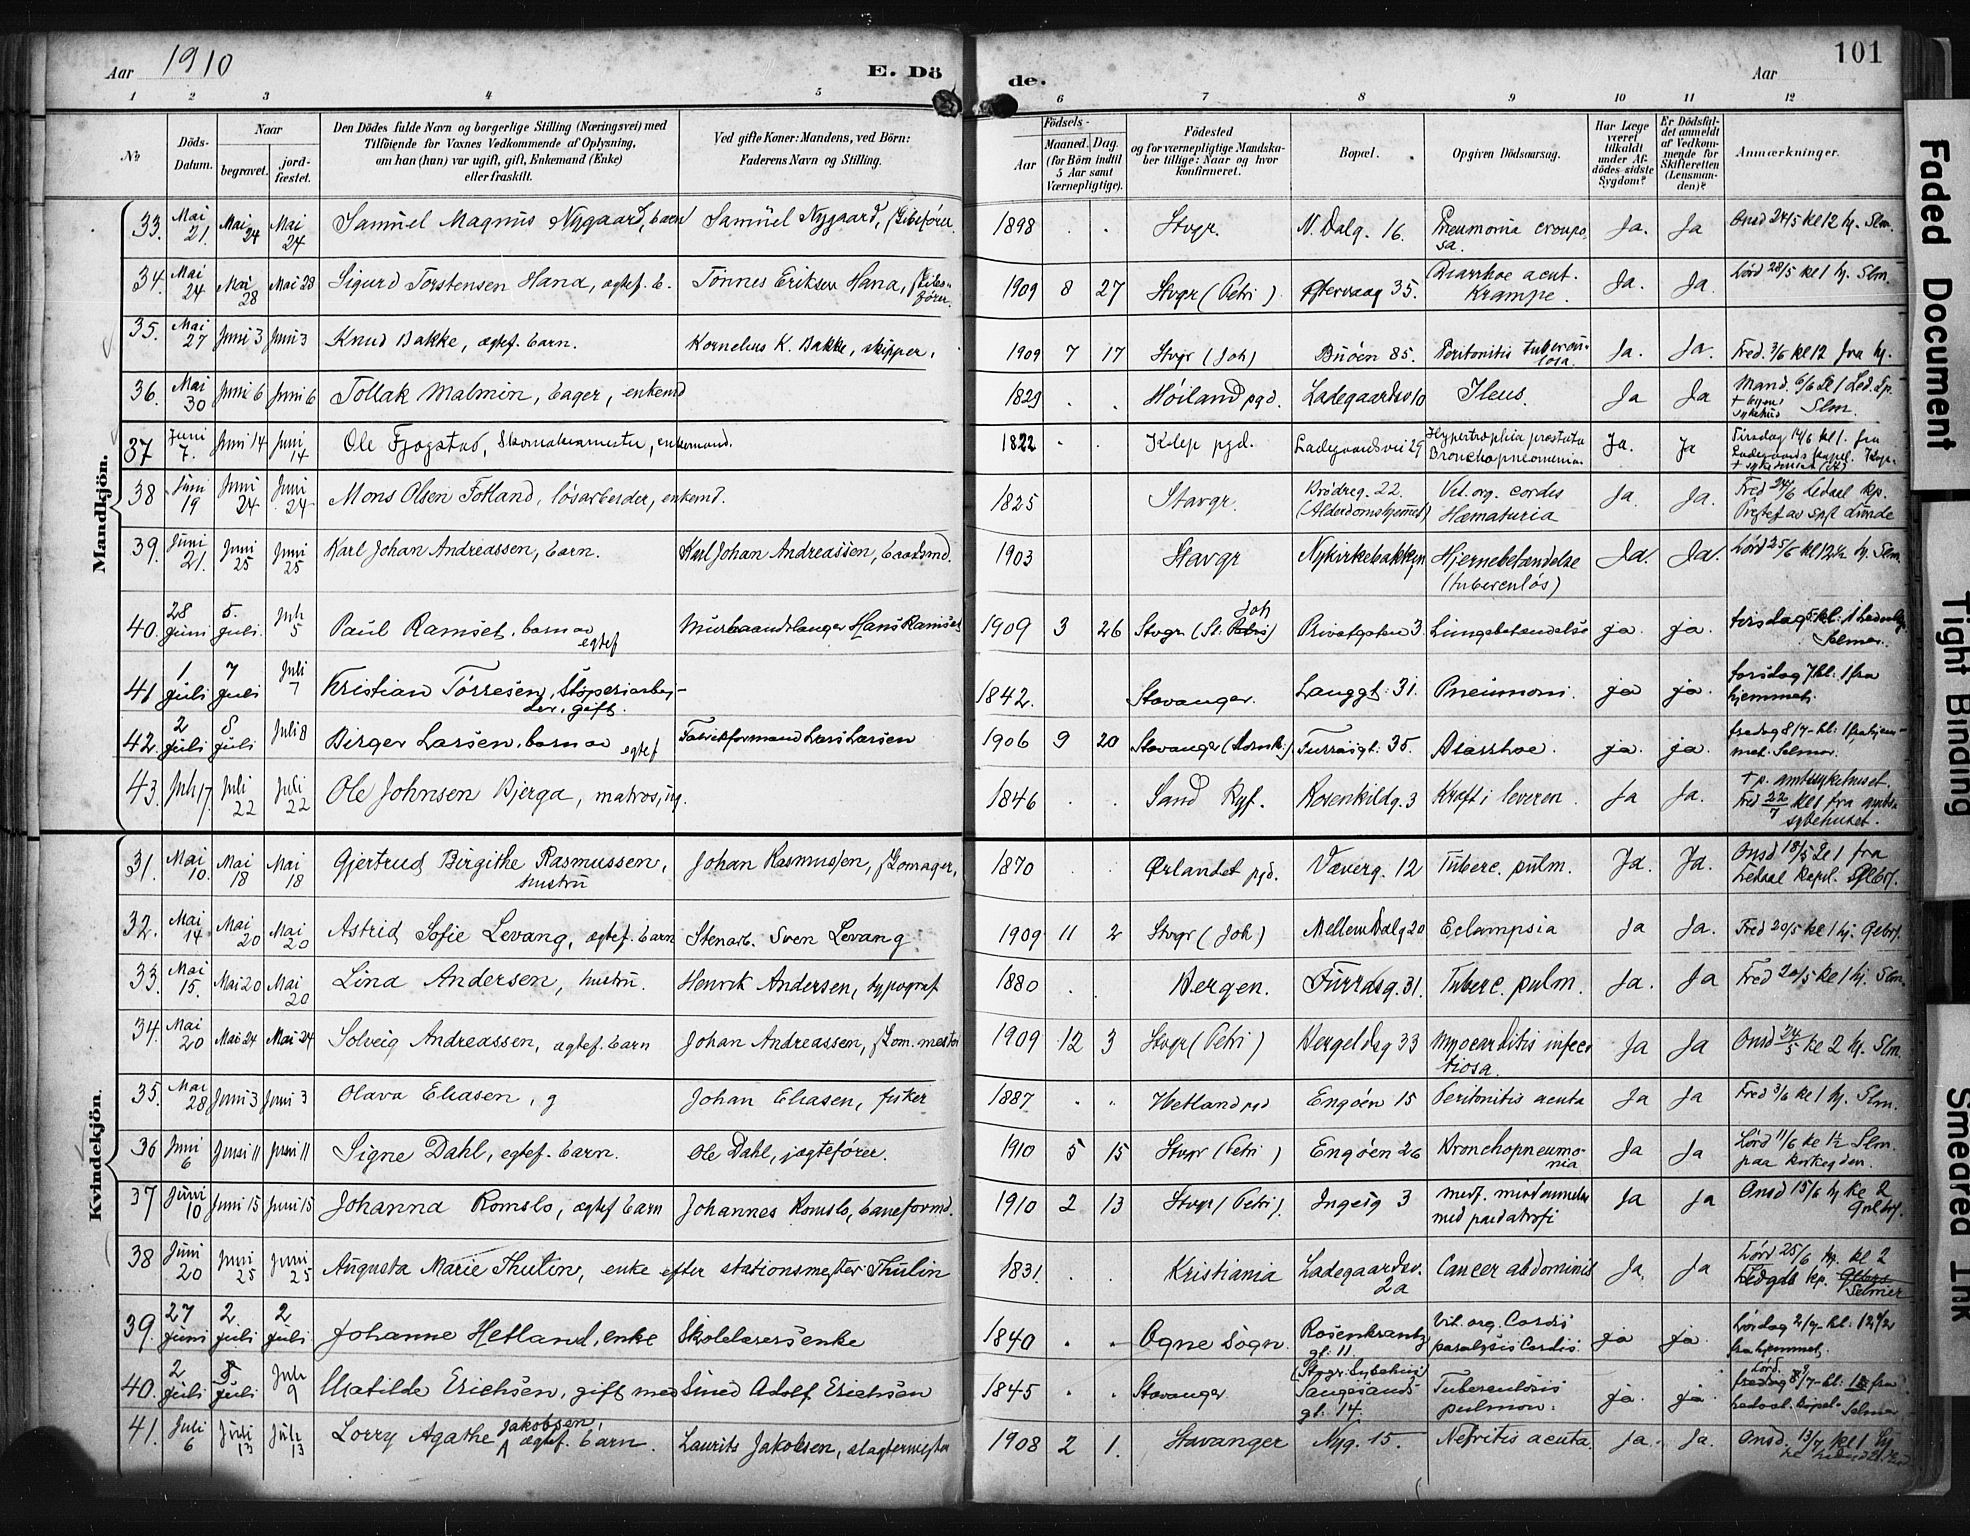 Aar 1910 E. Dö de. Aar 101
1 2 3 4 5 6 7 8 9 10 11 12
No
Döds-Datum.
Naar
begravet.
jord-fæstet.
Den Dödes fulde Navn og borgerlige Stilling (Næringsvei) med
Tilföiende for Voxnes Vedkommende af Oplysning,
om han (hun) var ugift, gift, Enkemand (Enke)
eller fraskilt.
Ved gifte Koner: Mandens, ved Börn:
Faderens Navn og Stilling.
Födsels-
Aar
Maaned. Dag.
(for Börn indtil
5 Aar samt
Værnepligtige).
Födested
og for værnepligtige Mandska-
ber tillige: Naar og hvor
konfirmeret.
Bopæl.
Opgiven Dödsaarsag.
Har Læge
været
tilkaldt
under Af-
dödes sidste
Sygdom?
Er Dödsfal-
det anmeldt
af Vedkom-
mende for
Skifteretten
(Lensman-
den)?
Anmærkninger.
Mandkjön.
33. Mai 21. Mai 24 Mai 24 Samuel Magnus Nygaard, barn Samuel Nygaard, 1898 Stvgr. N. Dalg. 16. Pneumonia croupo-sa. Ja. Ja Onsd 24/5 kl 12 hj. Slm.
34. Mai 24 Mai 28 Mai 28 Sigurd Torstensen Hana, egtef. b. Tönnes Eriksen Hana, 1909 8 27 Stvgr (Petri) Østervaag 35. Diarrhoe acut. Krampe. Ja. Ja. Lörd 28/5 kl 1 hj. Slm.
35. Mai 27 Juni 3 Juni 3 Knud Bakke, egtef. barn. Kornelius K. Bakke, skipper. 1909 7 17 Stvgr (Joh) Buöen 85. Peritonitis tubercu-losa. Ja. Ja. Fred. 3/6 kl 12 fra hj.
36. Mai 30 Juni 6 Juni 6 Tollak Malmin, bager, enkemd 1829 Höiland pgd. Ladegaardsv 10 Ileus. Ja Ja Mand. 6/6 kl 1 Led. kp. + byens sykehus Slm.
37 Juni 7. Juni 14 Juni 14 Ole Fjogstad, Skomakermester, enkemand. 1822 Klep pgd. Ladegaardsvei 29 Hypertrophia prostata Bronchopneumenia Ja. Ja Tirsdag 14/6 kl 1. fra Ladegaards kapel.
38 Juni 19 Juni 24 Juni 24 Mons Olsen Fotland, lösarbeider, enkemd. 1825 Stavgr. Brödreg. 22. (Alderdomshjemmet) Vit. org. cordis Hæmaturia Ja. Ja. Fred 24/6 Ledaal kp.
39. Juni 21. Juni 25 Juni 25 Karl Johan Andreassen, barn. Karl Johan Andreassen, baadsmd. 1903 Stavgr Nykirkebakken Hjernebetændelse (tuberculös) Ja. Ja. Lörd 25/6 kl 12½ hj. Slm.
40. 28 Juni 5. Juli. Juli 5 Paul Ramset, barn av egtef Murhaandlanger Hans Ramset 1909 3 26 Stvgr (St. Petri) Joh Privatgaten 3. Lungebetændelse ja. ja. tirsdag 5. kl. 1 Selmer.
41 1 Juli 7 Juli Juli 7 Kristian Törresen, Stöperiarbei-der, gift. 1842. Stavanger. Langgt. 31. Pneumoni. ja ja. torsdag 7 kl. 1 fra hjemmet.
42. 2 Juli 8 Juli Juli 8 Birger Larsen, barn av egtef Fabrikformand Lars Larsen 1906 9 20 Stavanger (Domk.) Furrasgt. 35. Diarrhoe. ja. ja. fredag 8/7 kl. 1 fra hjem-met. Selmer.
43. Juli 17 Juli 22 Juli 22 Ole Johnsen Bjerga, matros, ug. 1846 Sand Ryf. Rosenkildg. 3 Kræft i leveren. Ja Ja. + p. amtssykehuset. Fred 22/7 kl 1 fra amts-sykehuset.
Kvindekjön.
31. Mai 10. Mai 18 Mai 18 Gjertrud Birgithe Rasmussen, hustru Johan Rasmussen, skomager. 1870 Ørlandet pgd. Væverg. 12 Tuberc. pulm. Ja. Ja. Onsd 18/5 kl 1 fra Ledaal kapel.
32. Mai 14 Mai 20 Mai 20 Astrid Sofie Levang, egtef. barn Stenarb. Sven Levang 1909 11 2 Stvgr (Joh) Mellem Dalg 20 Eclampsia Ja Ja. Fred 20/5 kl 1 hj.
33. Mai 15. Mai 20 Mai 20 Lina Andersen, hustru. Henrik Andersen, typograf 1880 Bergen. Furrasg. 31. Tuberc. pulm. Ja. Ja Fred 20/5 kl 1 hj. Slm.
34. Mai 20 Mai 24 Mai 24 Solveig Andreassen, egtef. barn Johan Andreassen, skom. mester 1909 12 3 Stvgr (Petri) Bergeldsg 33 Myocarditis infec-tiosa. Ja Ja Onsd 24/5 kl 2 hj. Slm.
35. Mai 28 Juni 3 Juni 3 Olava Eliasen, g Johan Eliasen, fisker 1887 Hetland pgd Engöen 15 Peritonitis acuta Ja Ja Fred 3/6 kl 1 hj. Slm.
36 Juni 6 Juni 11 Juni 11 Signe Dahl, egtef. barn. Ole Dahl, jagtefører. 1910 5 15 Stvgr (Petri) Engöen 26 Bronchopneumo-nia Ja Ja Lörd 11/6 kl 1½ Slm. paa kirkegden.
37 Juni 10 Juni 15 Juni 15 Johanna Romslo, egtef barn Johannes Romslo, baneformd. 1910 2 13 Stvgr (Petri). 3 med pædatrofi Ja Ja Onsd 15/6 hj kl 2
38 Juni 20 Juni 25 Juni 25 Augusta Marie Thulin, enke efter stationsmester Thulin 1831. Kristiania Ladegaardsv. 2a Cancer abdominis Ja. Ja Lörd 25/6 kp. kl 2 Ledgds kp. Selmer
39. 27 Juni 2 Juli 2 Juli Johanne Hetland, enke Skolelærers enke 1840 Ogne Sogn. Rosenkrantz gt. 11. Vit. org. Cordis paralysis Cordis. ja ja. Lördag 2/7 kl. 12½ fra hjemmet.
40. 2 Juli 8 Juli Juli 9 Matilde Erichsen, gift med Smed Adolf Erichsen 1845 Stavanger (Stvgr. Sykehus) Sangesands gt. 14. Tuberculosis pulmon. ja. ja. Lörd. 9 fredag 8/7 kl. 1 fra Ledaal kapel. Selmer
41. Juli 6 Juli 13 Juli 13 Lorry Agathe Jakobsen, egtef. barn. Laurits Jakobsen, slagtermester 1908 2 1. Stavanger Nyg. 15. Nefritis acuta Ja. Ja. Onsd. 13/7 kl 1 hj
Faded Document
Tight Binding
Smeared Ink